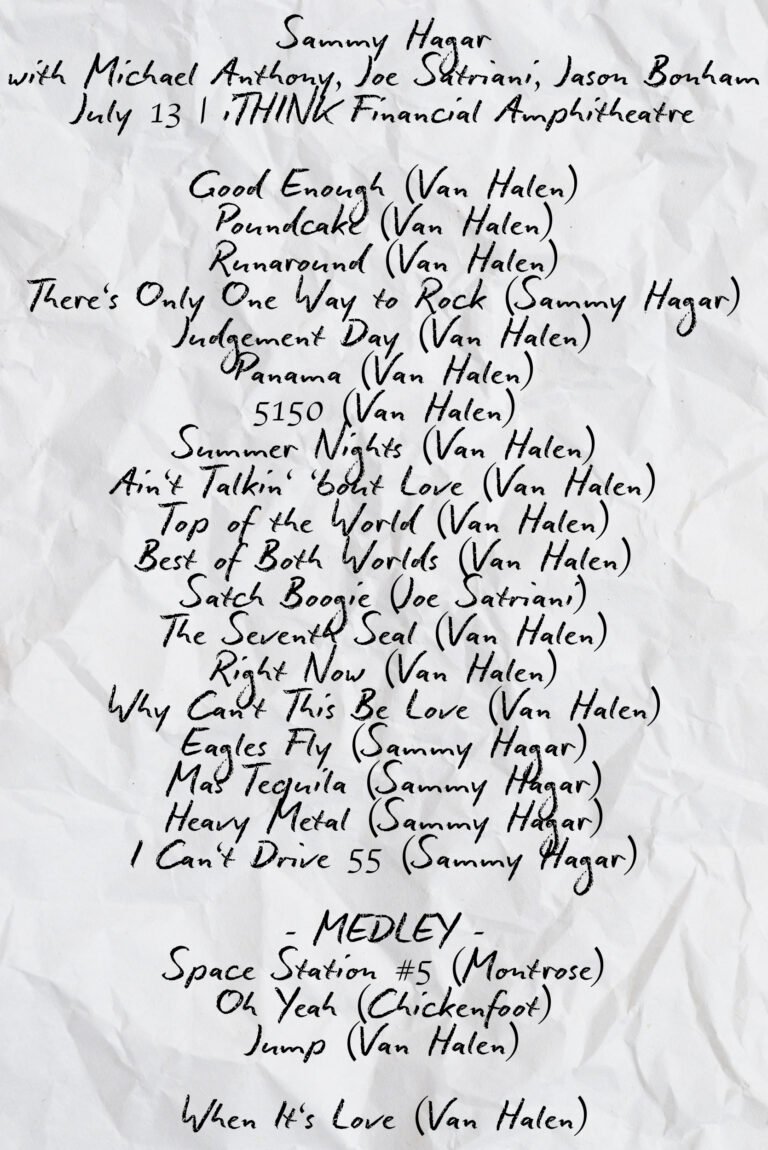 Sammy Hagar
with Michael Anthony, Joe Satriani, Jason Bonham
July 13 | iTHINK Financial Amphitheatre
Good Enough (Van Halen)
Poundcake (Van Halen)
Runaround (Van Halen)
There's Only One Way to Rock (Sammy Hagar)
Judgement Day (Van Halen)
Panama (Van Halen)
5150 (Van Halen)
Summer Nights (Van Halen)
Ain't Talkin' 'bout Love (Van Halen)
Top of the World (Van Halen)
Best of Both Worlds (Van Halen)
Satch Boogie (Joe Satriani)
The Seventh Seal (Van Halen)
Right Now (Van Halen)
Why Can't This Be Love (Van Halen)
Eagles Fly (Sammy Hagar)
Mas Tequila (Sammy Hagar)
Heavy Metal (Sammy Hagar)
I Can't Drive 55 (Sammy Hagar)
- MEDLEY -
Space Station #5 (Montrose)
Oh Yeah (Chickenfoot)
Jump (Van Halen)
When It's Love (Van Halen)